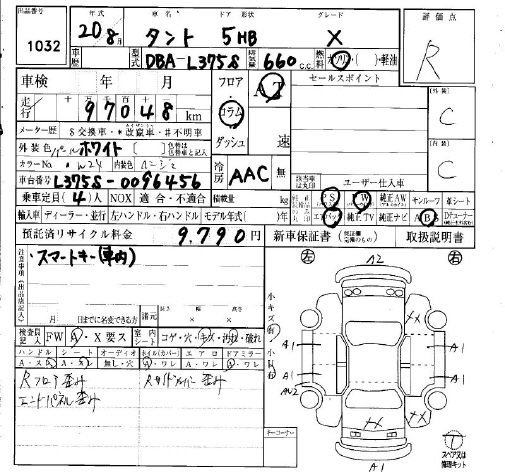 出品番号 1032
年式 20 8月
車名 タント
ドア 形状 5HB
グレード X
評価点 R
車歴
型式 DBA-L375S
排気量 660 c.c.
燃料 ガソリン・( )・軽油
車検 年 月
走行 97048 km
フロア コラム ダッシュ
AT 速
セールスポイント
外装 C
内装 C
メーター歴 $交換車・*改竄車・#不明車
外装色 パールホワイト
カラーNo. W24 内装色
車台番号 L375S-0096456
冷房 AAC 無
ユーザー仕入車
乗車定員 (4)人 NOX 適合・不適合 積載量 kg
PS PW 純正AW サンルーフ 本シート
輸入車 ディーラー・並行 左ハンドル・右ハンドル モデル年式( )年
エアバッグ 純正TV 純正ナビ ABS
預託済リサイクル料金 9,790円
新車保証書 取扱説明書
スマートキー(車内)
日までに名変できる方
諸元 長さ 幅 高さ × ×
左 右
小キズ 小凹
検査員記入 FW A・X要ス 室内シート コゲ・穴・キズ・汚れ・破れ
ハンドル シート オーディオ ホイル(カバー) エアロ ドアミラー
A・ス A・ス 無し・穴 A・ワレ A・ワレ A・ワレ
Rフロア歪み
エンドパネル歪み
キーコーナー
A2
XX
A1 A1
A1 A1
AW2
XX XX
A1
T
スペアスは修理キット